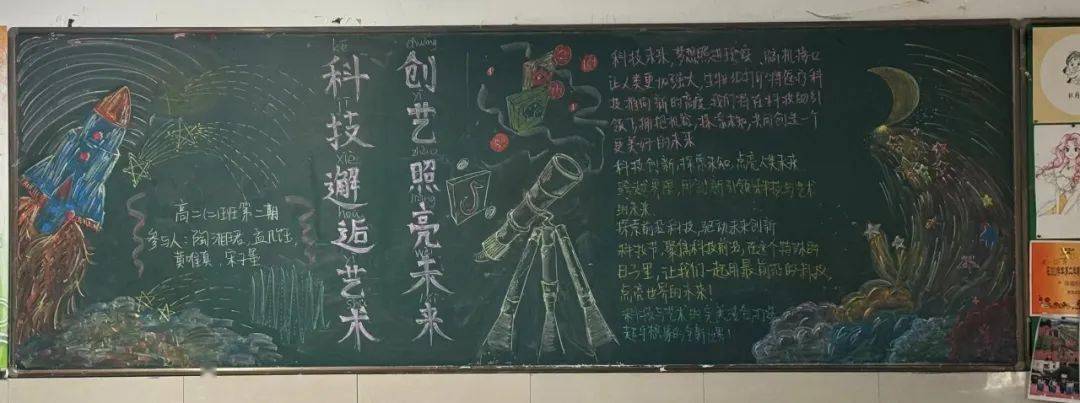 高二(二)班第二期
参与人:陶湘君,孟凡钰,
黄唯真,宋子墨
科技邂逅艺术
创艺照亮未来
科技未来,梦想照进现实,脑机接口
让人类更加强大,生物打印将医疗科
技推向新的高度,我们将在科技的引
领下,拥抱机遇,探索未知,共同创造一个
更美好的未来
科技创新,探索未知,点亮人类未来
跨越界限,用创新引领科技与艺术
的未来
探索前沿科技,驱动未来创新
科技节,聚集科技前沿,在这个特殊的
日子里,让我们一起用最前沿的科技,
点亮世界的未来!
科技与艺术的完美融合,打造
超乎想象的全新世界!